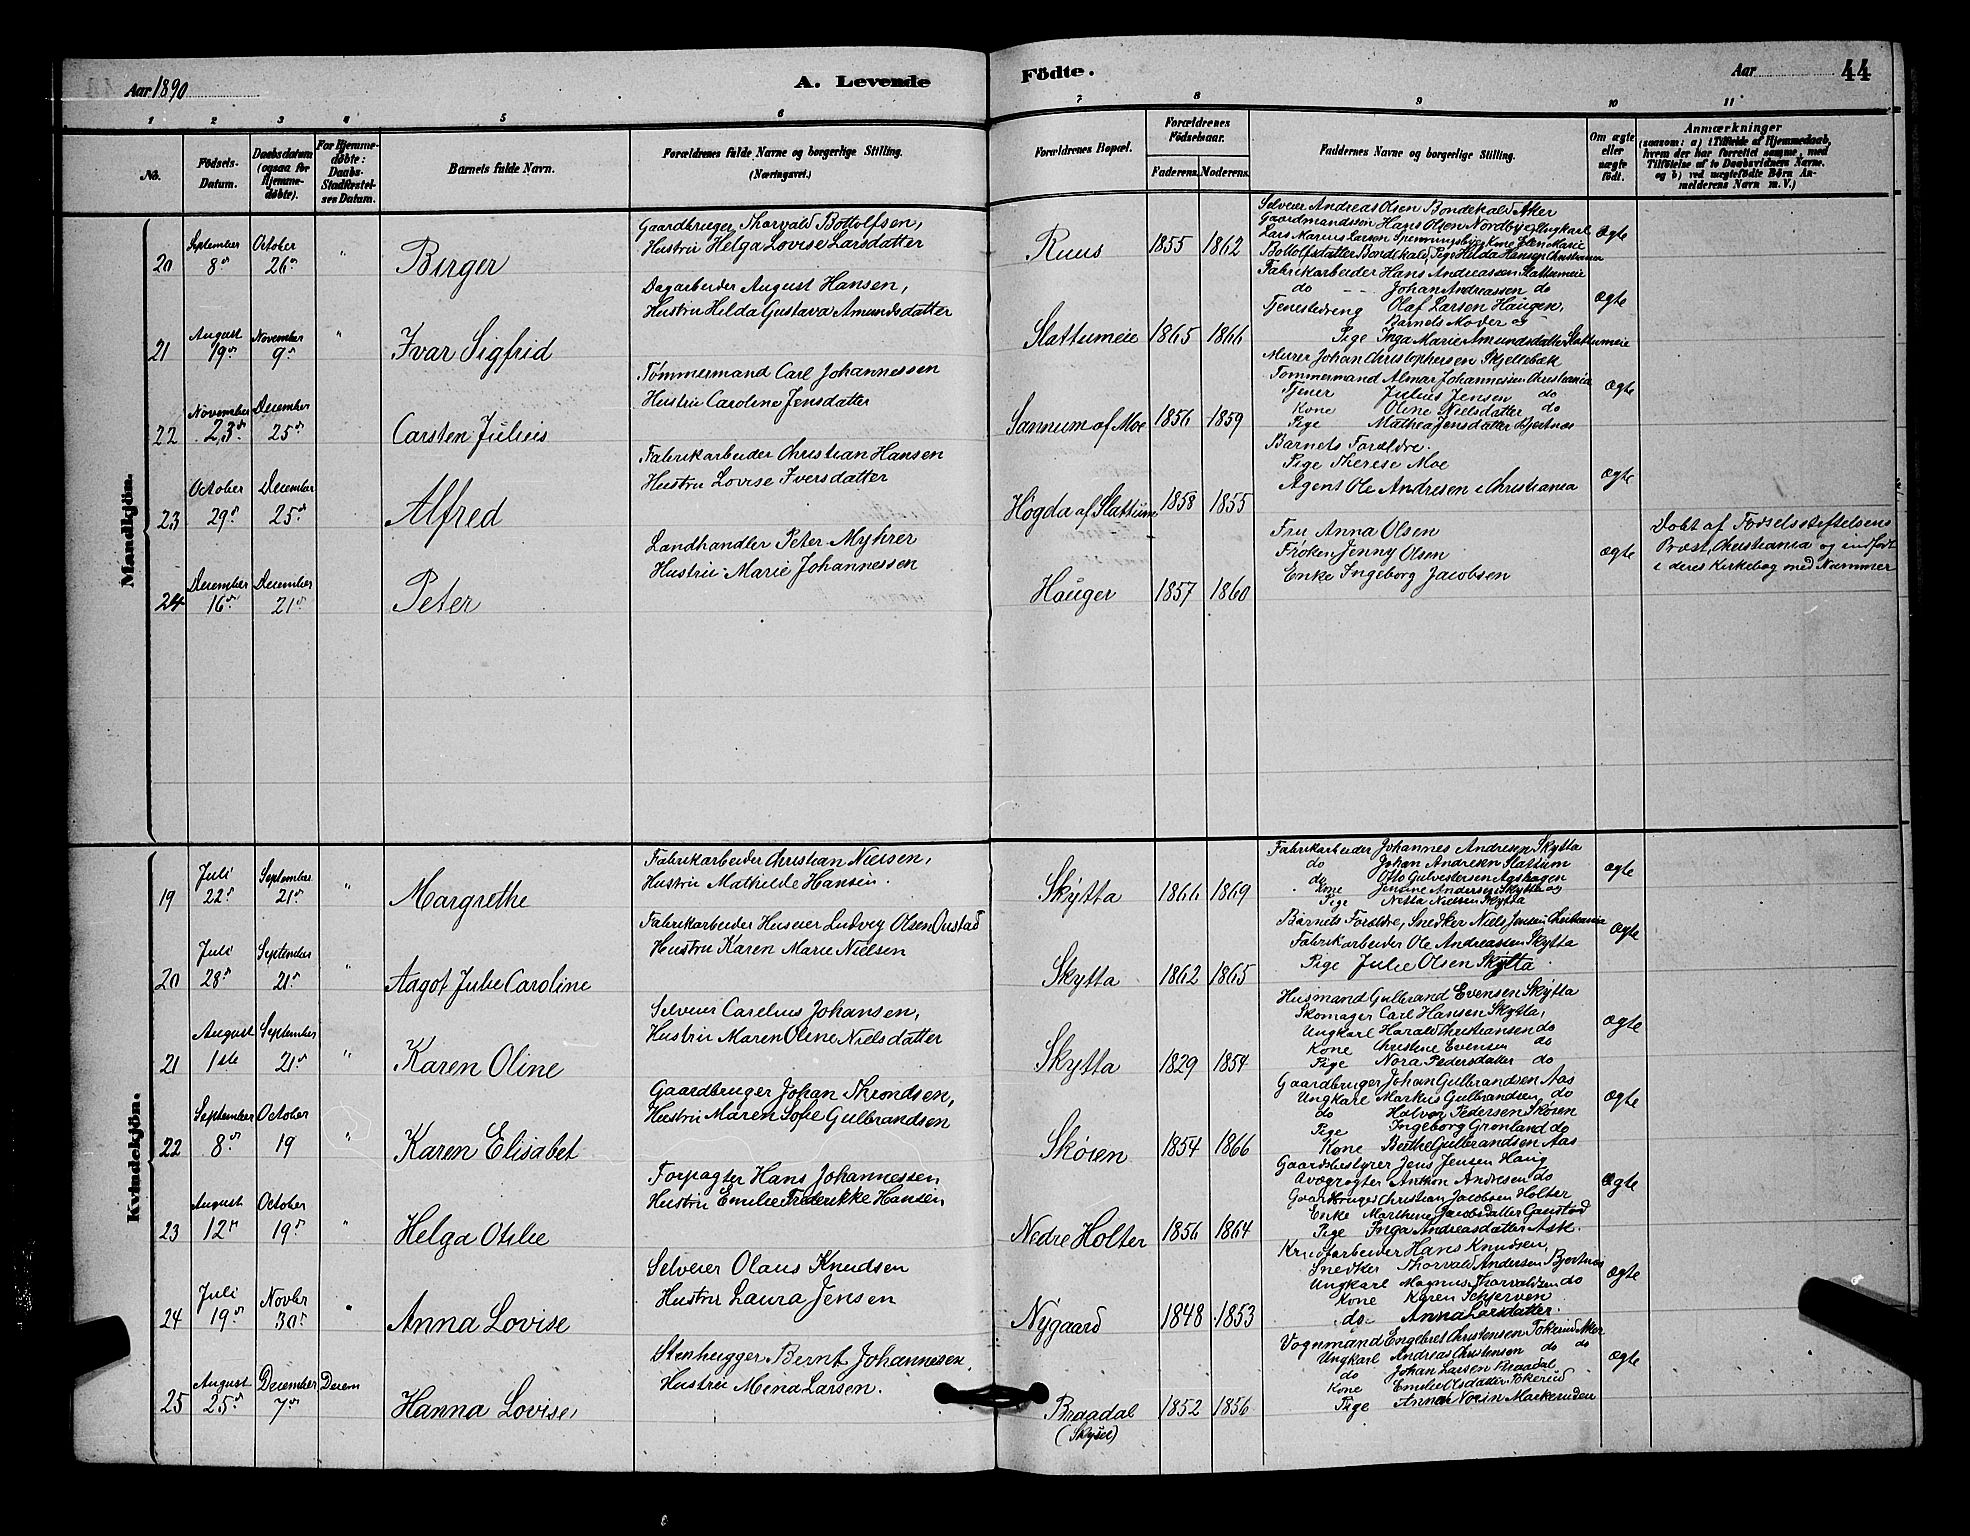 Aar 1890
A. Levende
Födte.
Aar
44
1 2 3 4 5 6 7 8 9 10 11
No.
Födsels-Datum.
Daabsdatum (ogsaa for Hjemme-döbte).
For Hjemme-döbte: Daabs-Stadfæstel-ses Datum.
Barnets fulde Navn.
Forældrenes fulde Navne og borgerlige Stilling.
(Næringsvei.)
Forældrenes Bopæl.
Forældrenes Födselsaar.
Faderens.
Moderens.
Faddernes Navne og borgerlige Stilling.
Om ægte eller uægte födt.
Anmærkninger
(saasom: a) i Tilfælde af Hjemmedaab,
hvem der har forrettet samme, med
Tilföielse af to Daabsvidners Navne,
og b) ved uægtefödte Börn An-
melderens Navn m. V.)
Mandkjön.
20
September 8de
October 26de
"
Birger
Gaardbruger Thorvald Bottolfsen,
Hustru Helga Lovise Larsdatter
Ruus
1855
1862
Selveier Andreas Olsen Bondekald Aker
Gaardmandssøn Hans Olsen Nordbye, Ungkarl
Lars Marius Larsen Spenningsbye, Kone Elen Marie
Bottolfsdatter Bondekald, Pige Hilda Hansen Christiania
Ægte
21
August 19de
November 9de
"
Ivar Sigfrid
Dagarbeider August Hansen,
Hustru Hilda Gustava Amundsdatter
Slattumeie
1865
1866
Fabrikarbeider Hans Andreassen Slattumeie
do Johan Andreassen do
Tjenestedreng Olaf Larsen Haugen,
Barnets Moder og
Pige Inga Marie Amundsdatter Slattumeie
Ægte
22
November 23de
December 25de
Carsten Julius
Tømmermand Carl Johannessen
Hustru Caroline Jensdatter
Sannum af Moe
1856
1859
Murer Johan Christophersen Skjellebæk
Tømmermand Almar Johannesen Christiania
Tjener Julius Jensen do
Kone Oline Nielsdatter do
Pige Mathea Jensdatter Bjertnes
Ægte
23
October 29de
December 25de
Alfred
Fabrikarbeider Christian Hansen
Hustru Lovise Iversdatter
Høgda af Slattum
1858
1855
Barnets Forældre.
Pige Therese Moe
Agent Ole Andresen i Christiania
Ægte
24
December 16de
December 21de
Peter
Landhandler Peter Myhrer
Hustru Marie Johannessen
Hauger
1857
1860
Fru Anna Olsen
Frøken Jenny Olsen
Enke Ingeborg Jacobsen
Ægte
Døbt af Fødselsstiftelsens
Præst, Christiania og indført
i deres Kirkebog med Nummer
Kvindekjön.
19
Juli 22de
September 21de
"
Margrethe
Fabrikarbeider Christian Nielsen,
Hustru Mathilde Hansen.
Skytta
1866
1869
Fabrikarbeider Johannes Andresen Skytta
do Johan Andresen Slattum
do Otto Gulvestersen Aashagen
Kone Jensine Andersen Skytta og
Pige Netta Nielsen Skytta
Ægte
20
Juli 28de
September 21de
"
Aagot Julie Caroline
Fabrikarbeider Huseier Ludvig Olsen Onstad
Hustru Karen Marie Nielsen
Skytta
1862
1865
Barnets Forældre, Snedker Niels Jensen Christiania
Fabrikarbeider Ole Andreassen Skytta
Pige Julie Olsen Skytta.
Ægte
21
August 1ste
September 21de
"
Karen Oline
Selveier Carelius Johansen,
Hustru Maren Oline Nielsdatter
Skytta
1829
1854
Husmand Gulbrand Evensen Skytta
Skomager Carl Hansen Skytta,
Ungkarl Harald Christiansen do
Kone Christine Evensen do
Pige Nora Pedersdatter do
Ægte
22
September 8de
October 19
"
Karen Elisabet
Gaardbruger Johan Throndsen,
Hustru Maren Sofie Gulbrandsen
Skøien
1854
1866
Gaardbruger Johan Gulbrandsen Aas
Ungkarl Markus Gulbrandsen do
do Halvor Pedersen Skøien
Pige Ingeborg Grønland do
Kone Berthe Gulbrandsen Aas
Ægte
23
August 12te
October 19de
"
Helga Otilie
Forpagter Hans Johannessen
Hustru Emilie Frederikke Hansen
Nedre Holter
1856
1864
Gaardsbestyrer Jens Jensen Haug
Avlsrøgter Anthon Andresen do
Gaardbruger Christian Jacobsen Holter
Enke Marthine Jacobsdatter Gaustad
Pige Inga Andreasdatter Ask.
Ægte
24
Juli 19de
Novbr 30te
"
Anna Lovise
Selveier Olaus Knudsen
Hustru Laura Jensen
Nygaard
1848
1853
Krudtarbeider Hans Knudsen,
Snedker Thorvald Andersen Bjertnes
Ungkarl Magnus Thorvaldsen do
Kone Karen Schjerven
do Anna Larsdatter.
Ægte
25
August 25de
December 7de
Decem
Hanna Lovise
Stenhugger Bernt Johannesen,
Hustru Mina Larsen.
Braadal
(Skysel)
1852
1856
Vognmand Engebret Christensen Tokerud Aker
Ungkarl Andreas Christensen do do
do Johan Larsen Braadal
Kone Emilie Olsdatter Tokerud
Pige Anna Noren Markeruden
Ægte